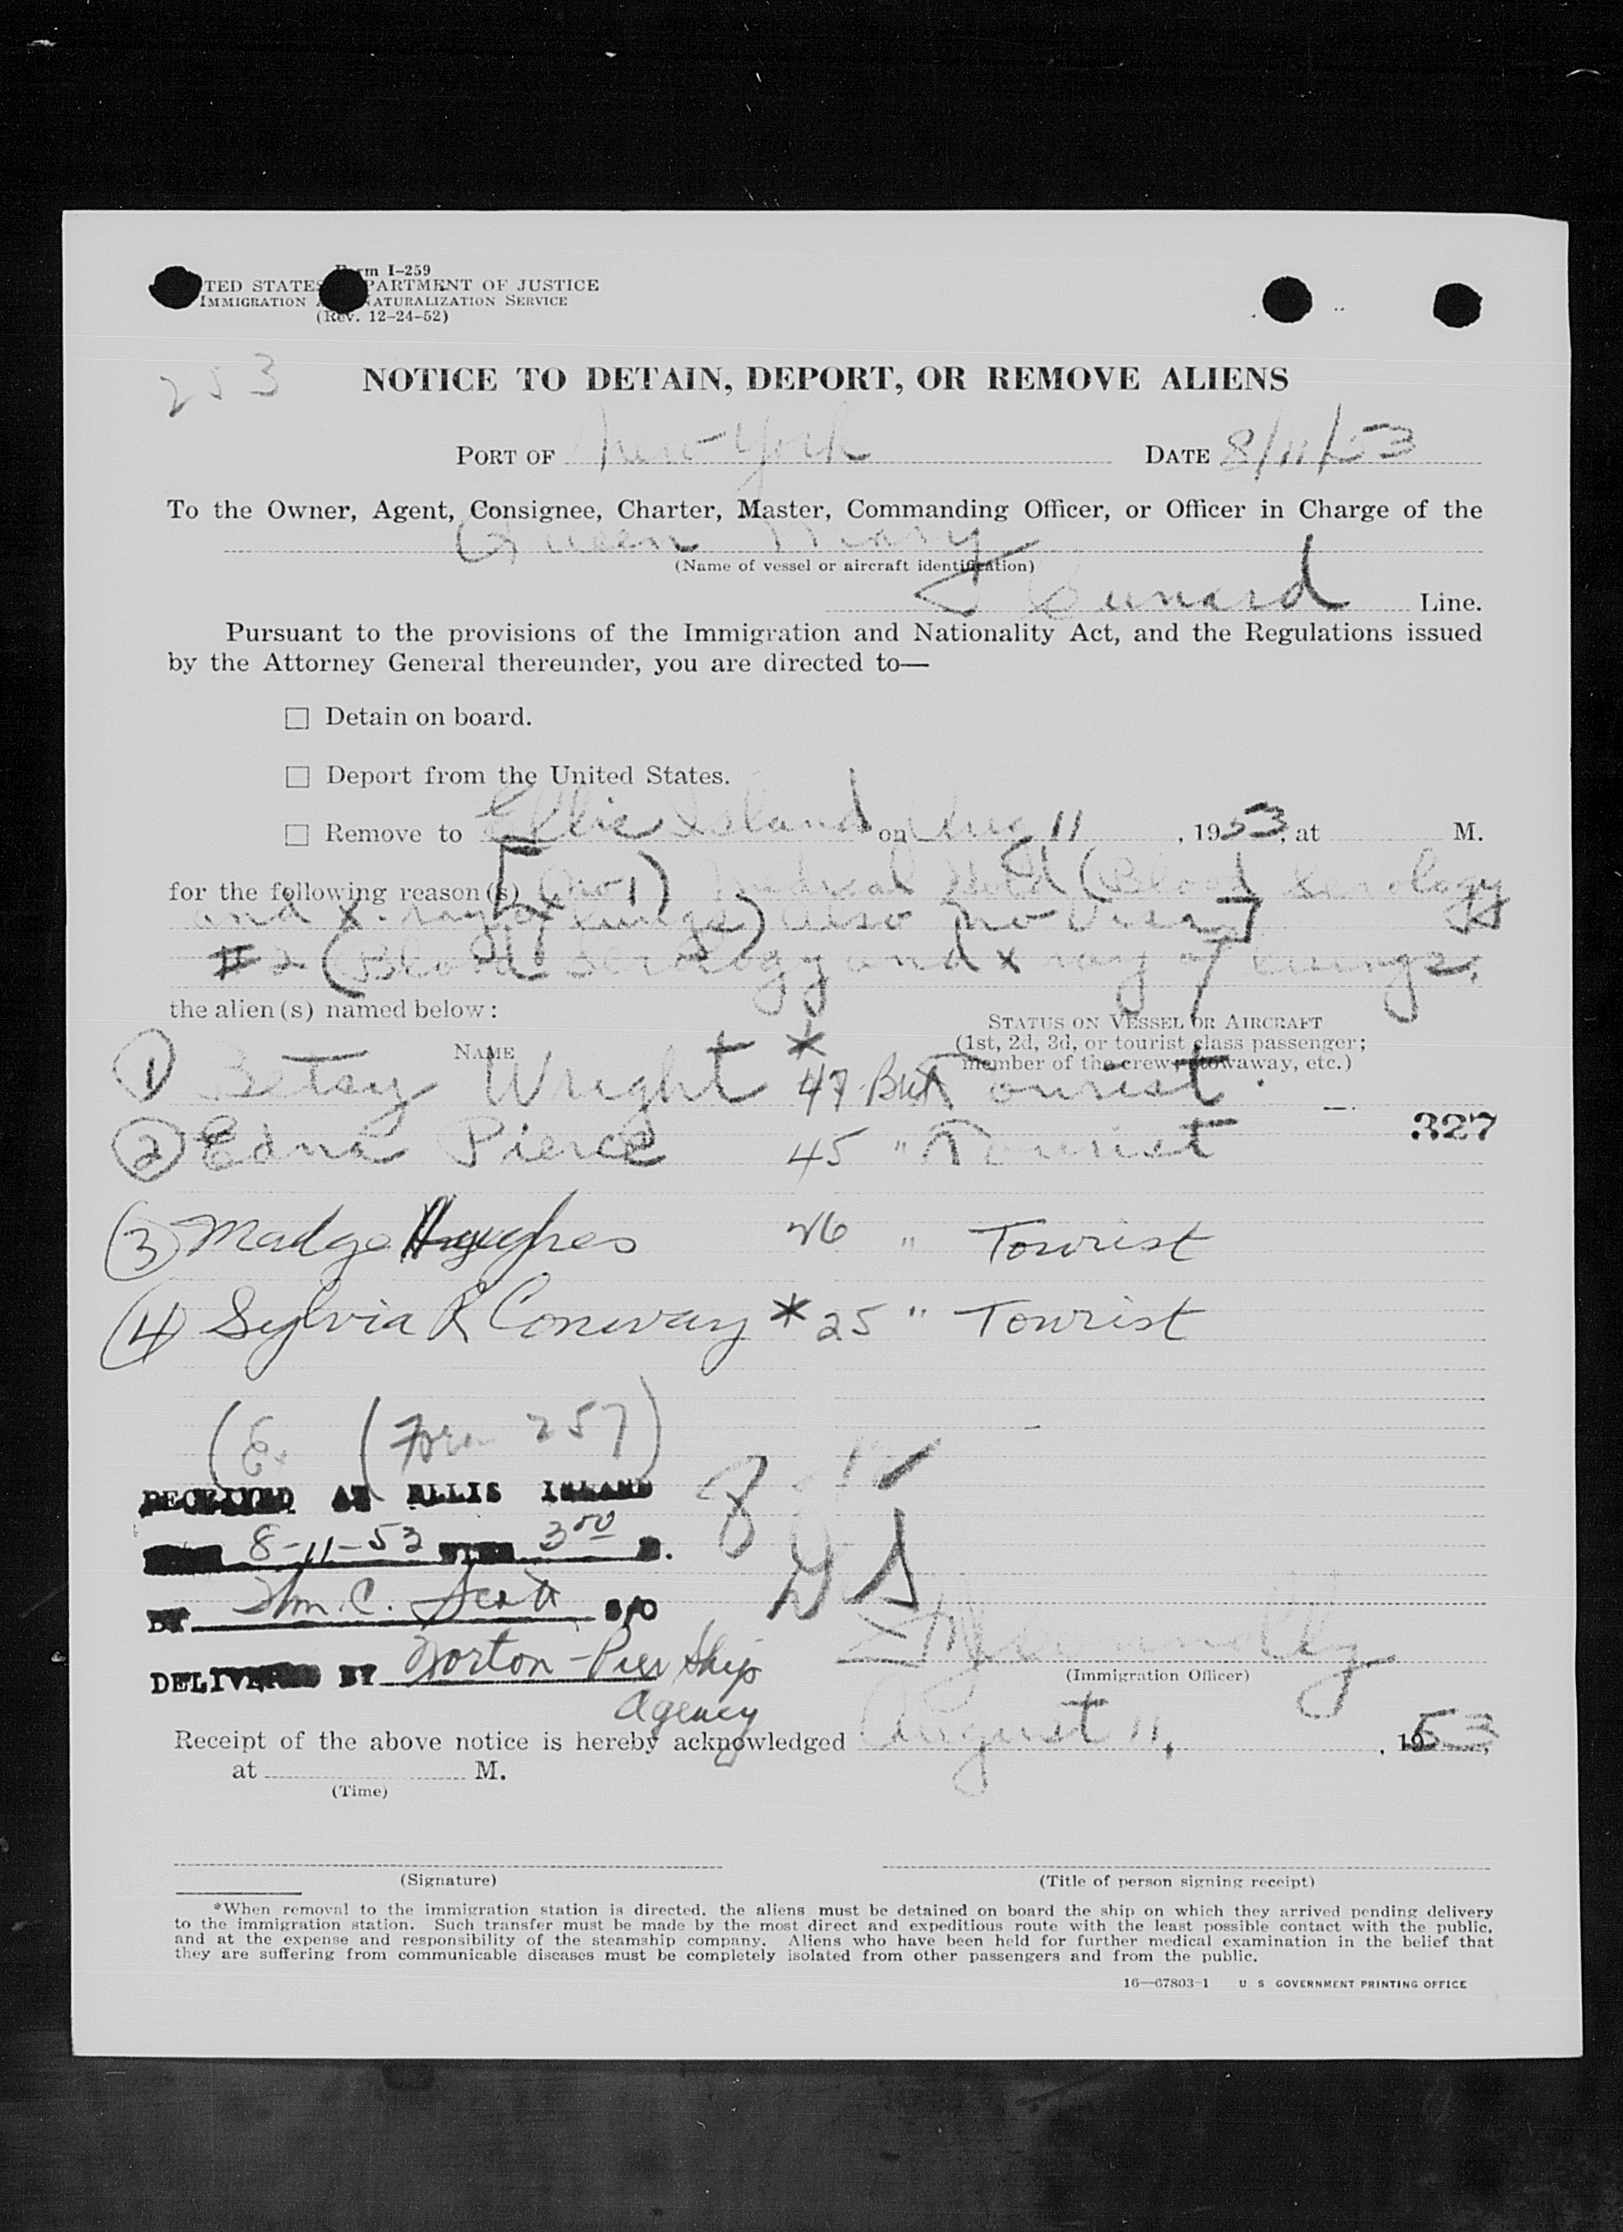 Form I-259
UNITED STATES DEPARTMENT OF JUSTICE
IMMIGRATION AND NATURALIZATION SERVICE
(Rev. 12-24-52)
253
NOTICE TO DETAIN, DEPORT, OR REMOVE ALIENS
PORT OF New York DATE 8/11/53
To the Owner, Agent, Consignee, Charter, Master, Commanding Officer, or Officer in Charge of the
Queen Mary
(Name of vessel or aircraft identification)
Cunard Line.
Pursuant to the provisions of the Immigration and Nationality Act, and the Regulations issued
by the Attorney General thereunder, you are directed to—
☐ Detain on board.
☐ Deport from the United States.
☐ Remove to Ellis Island on Aug 11, 1953, at M.
for the following reason(s) [(No 1) Medical Hold (Blood Serology
and X-ray of lungs) also no Visa]
#2 (Blood Serology and X ray of lungs.
the alien(s) named below:
NAME
STATUS ON VESSEL OR AIRCRAFT
(1st, 2d, 3d, or tourist class passenger;
member of the crew, stowaway, etc.)
1 Betsy Wright * 47 Brit Tourist.
2 Edna Pierce 45 " Tourist
327
3 Madge Hughes 26 " Tourist
4 Sylvia R Conway * 25 " Tourist
(E. (Form 257)
RECEIVED AT ELLIS ISLAND
DATE 8-11-53 TIME 3 00 M.
BY Wm. C. Scott S/O
DELIVERED BY Norton-Pier Ship
Agency
(Immigration Officer)
Receipt of the above notice is hereby acknowledged August 11, 1953,
at M.
(Time)
(Signature)
(Title of person signing receipt)
*When removal to the immigration station is directed, the aliens must be detained on board the ship on which they arrived pending delivery
to the immigration station. Such transfer must be made by the most direct and expeditious route with the least possible contact with the public,
and at the expense and responsibility of the steamship company. Aliens who have been held for further medical examination in the belief that
they are suffering from communicable diseases must be completely isolated from other passengers and from the public.
16—67803-1 U S GOVERNMENT PRINTING OFFICE